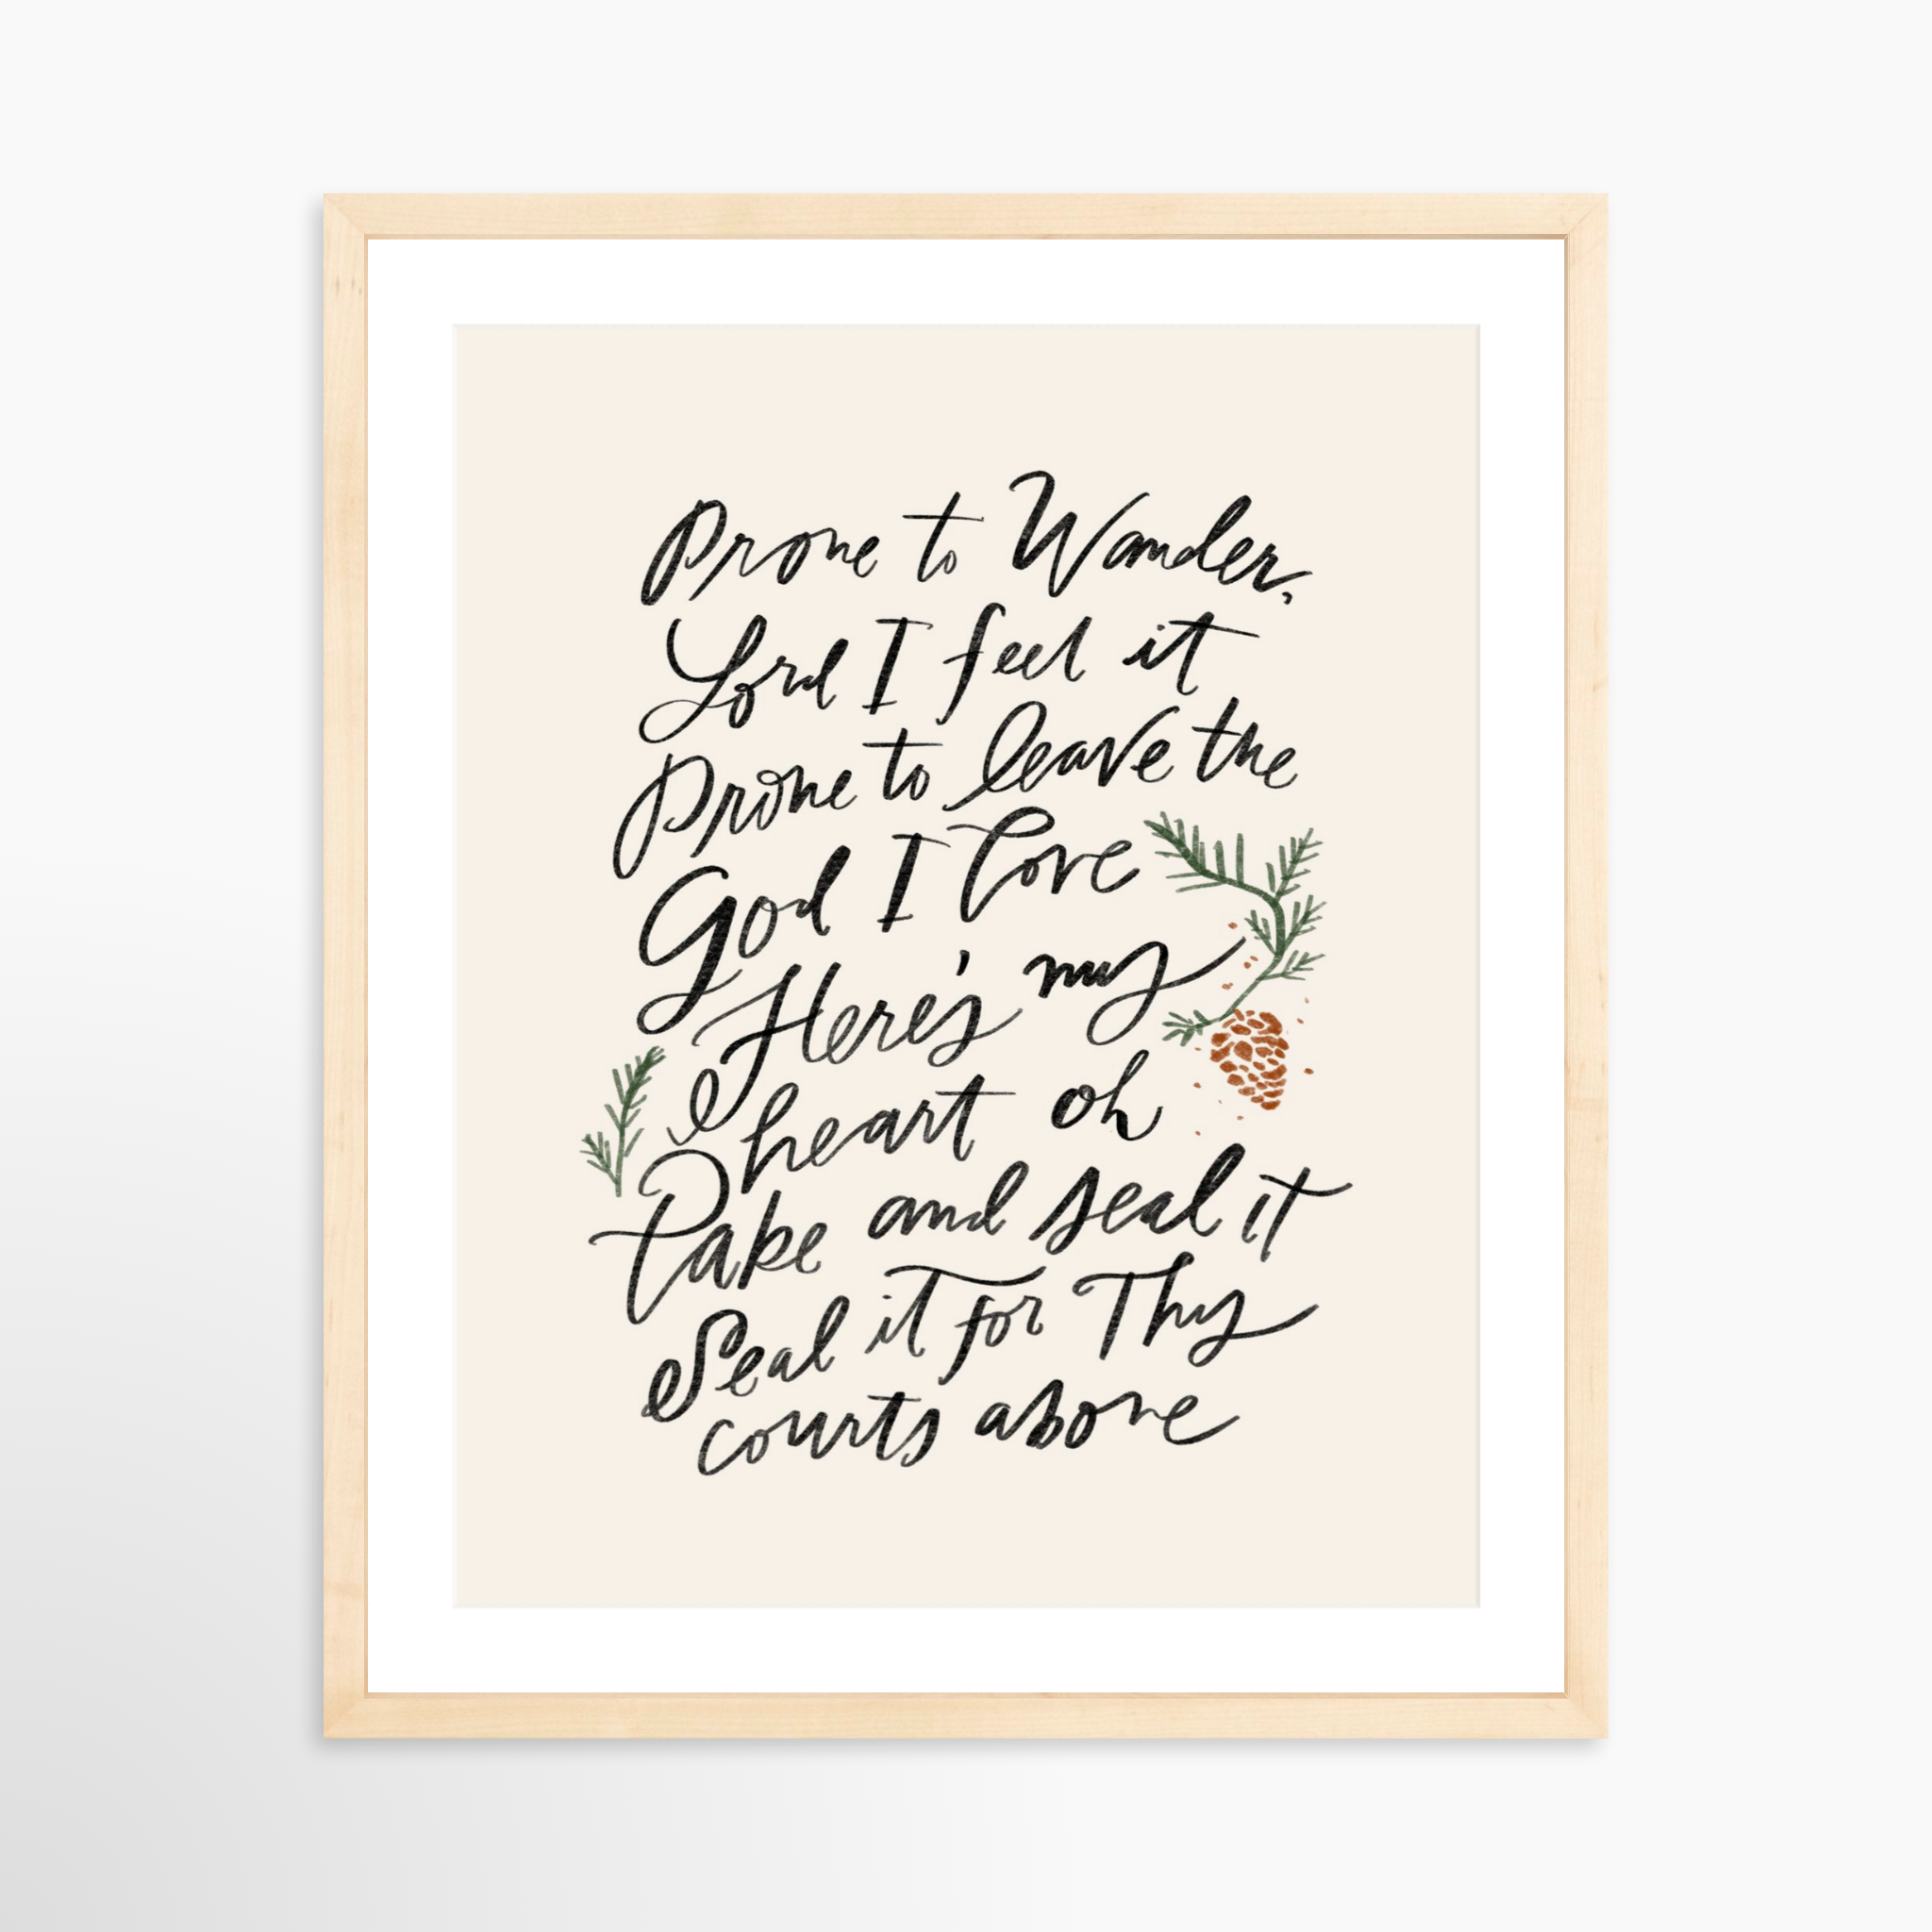 Prone to Wander,
Lord I feel it
Prone to leave the
God I love
Here's my
heart oh
Take and seal it
Seal it for Thy
courts above